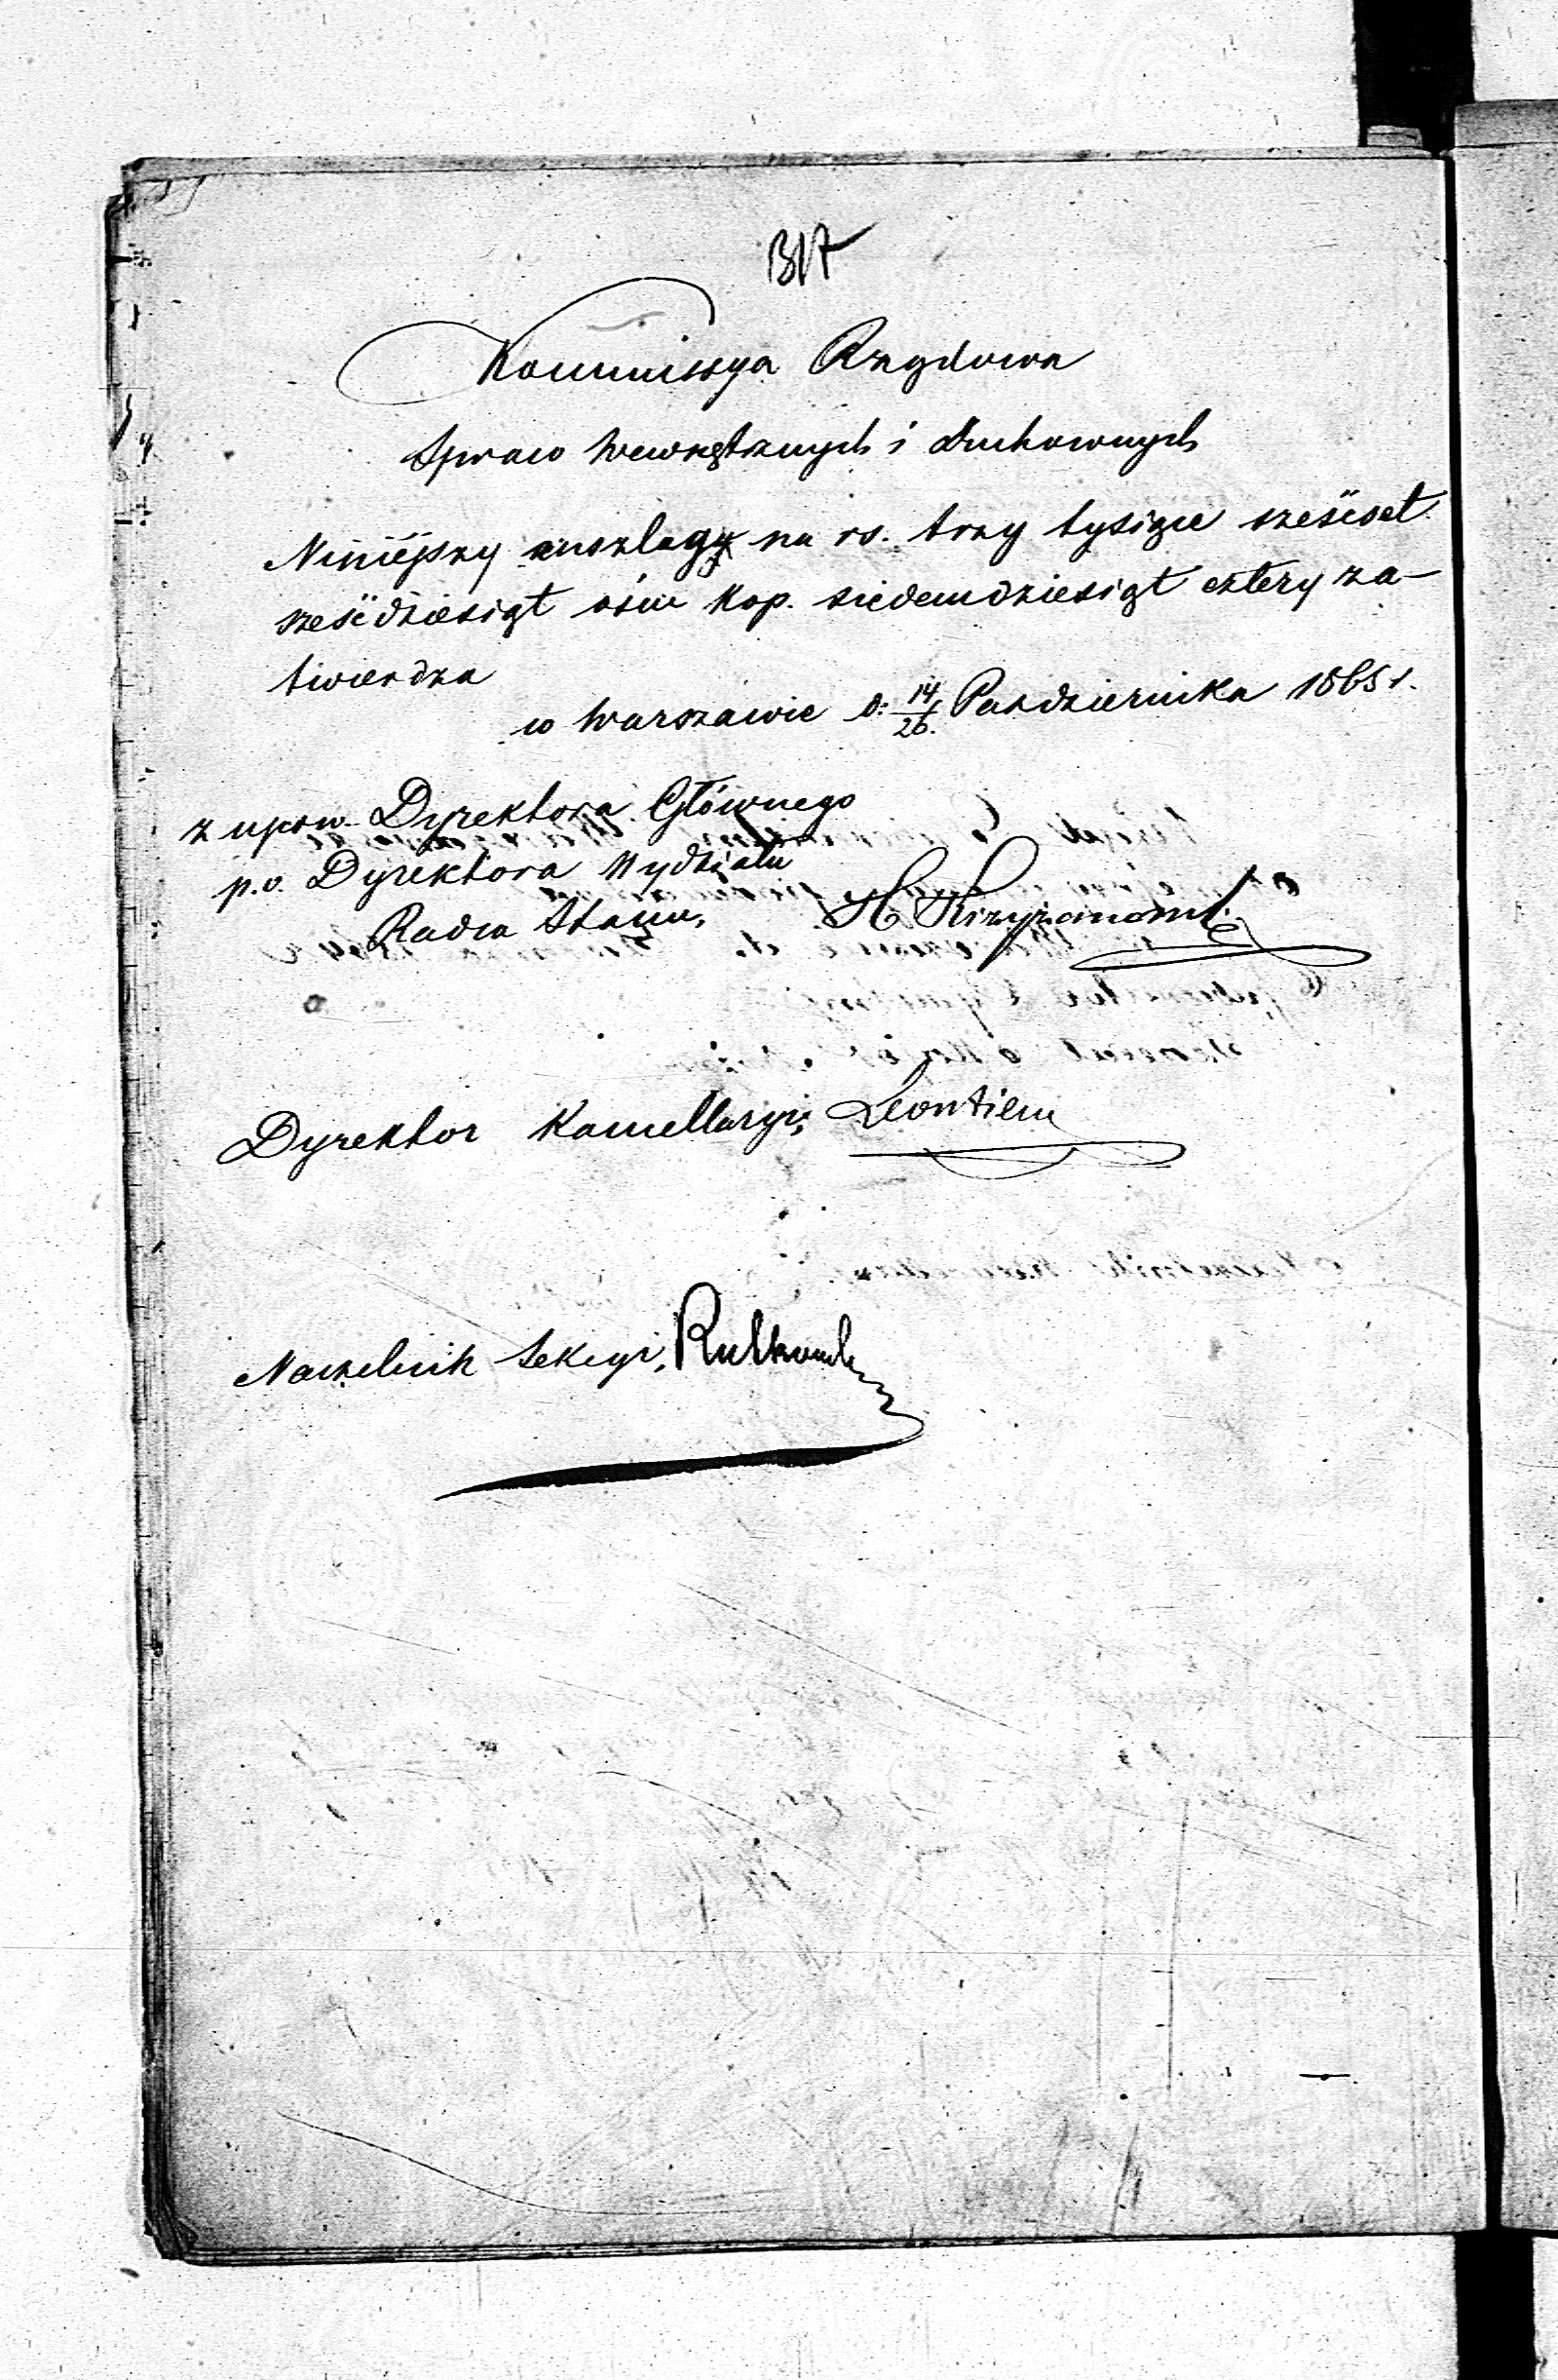 Kommissya Rządowa
Spraw Wewnętrznych i Duchownych
Niniejszy anszlag na rs. trzy tysiące sześćset
sześćdziesiąt ośm kop. siedemdziesiąt cztery za-
twierdza
w Warszawie d: 14/26. Października 1865 r.
z upow. Dyrektora Głównego
p.o. Dyrektora Wydziału
Radca Stanu, H Krzyżanowski
Dyrektor Kancellaryi,
Naczelnik Sekcyi,